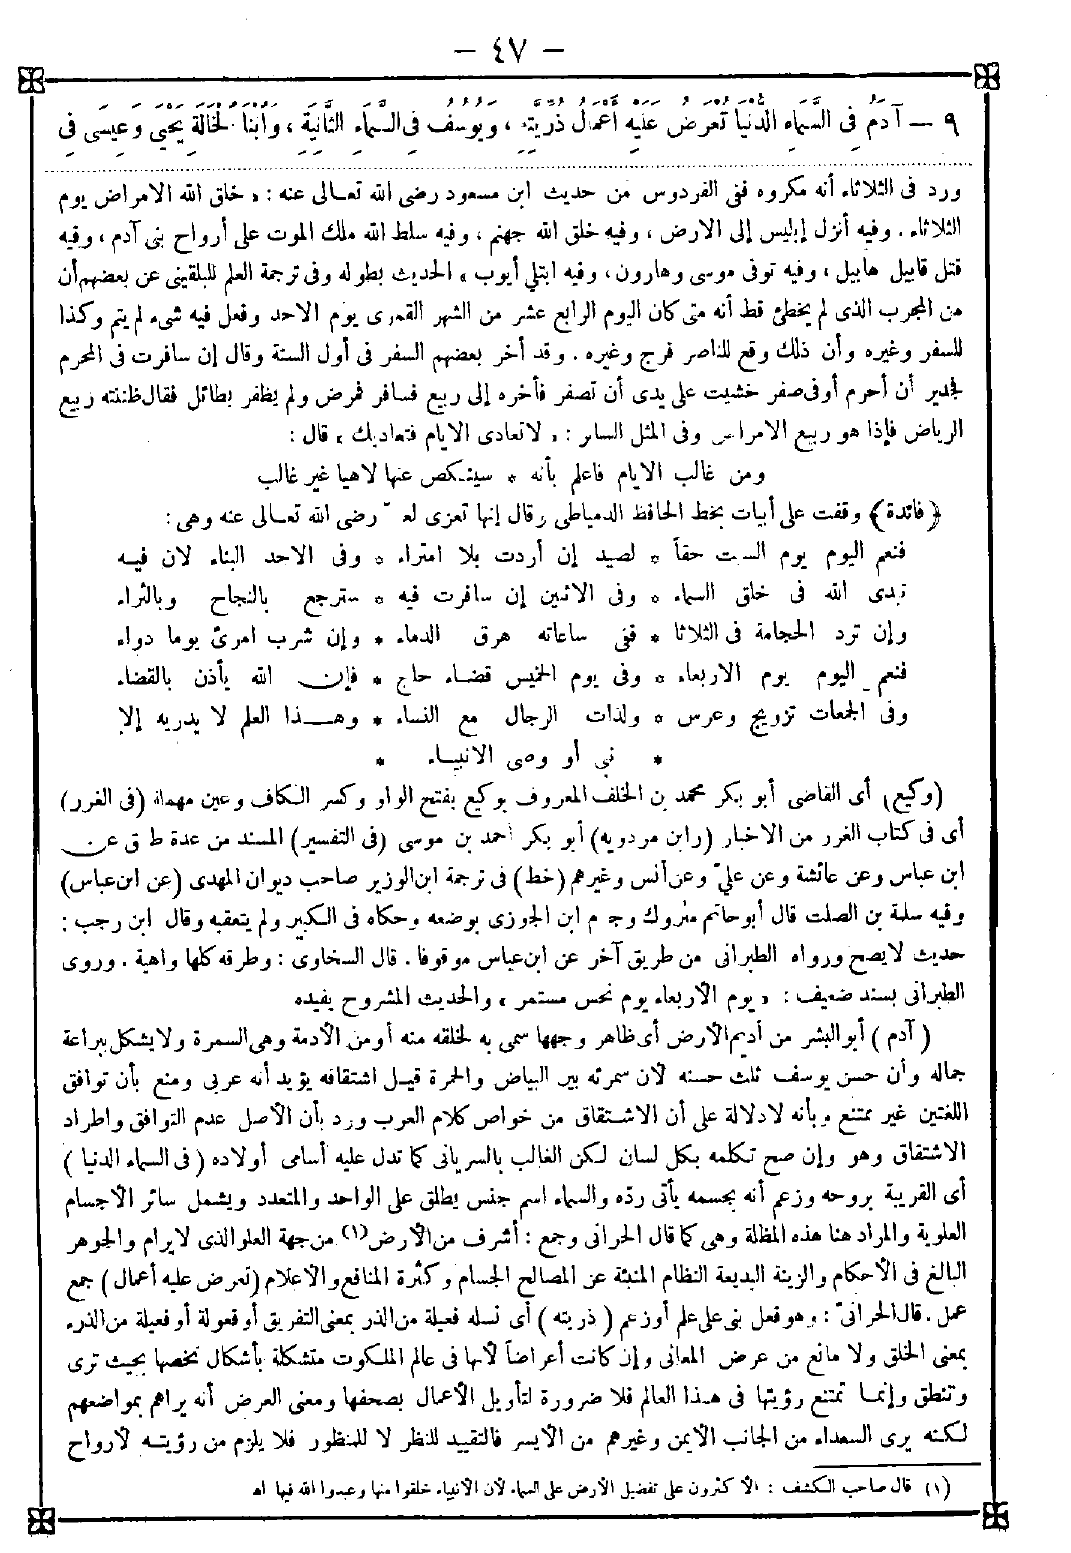 – ٤٧ –
٩ – آدَمُ فِي السَّمَاءِ الدُّنْيَا تُعْرَضُ عَلَيْهِ أَعْمَالُ ذُرِّيَّتِهِ ، وَيُوسُفُ فِي السَّمَاءِ الثَّانِيَةِ ، وَابْنَا الْخَالَةِ يَحْيَى وَعِيسَى فِي
ورد فى الثلاثاء أنه مكروه ففى الفردوس من حديث ابن مسعود رضى الله تعالى عنه : « خلق الله الامراض يوم
الثلاثاء . وفيه أنزل إبليس إلى الارض ، وفيه خلق الله جهنم ، وفيه سلط الله ملك الموت على أرواح بنى آدم ، وفيه
قتل قابيل هابيل ، وفيه توفى موسى وهارون، وفيه ابتلى أيوب » الحديث بطوله وفى ترجمة العلم للبلقينى عن بعضهم أن
من المجرب الذى لم يخطئ قط أنه متى كان اليوم الرابع عشر من الشهر القمرى يوم الاحد وفعل فيه شىء لم يتم وكذا
للسفر وغيره وأن ذلك وقع للناصر فرج وغيره . وقد أخر بعضهم السفر فى أول السنة وقال إن سافرت فى المحرم
فجدير أن أحرم أوفى صفر خشيت على يدى أن تصفر فأخره إلى ربيع فسافر فمرض ولم يظفر بطائل فقال ظننته ربيع
الرياض فإذا هو ربيع الامراض وفى المثل السائر : « لاتعادى الايام فتعاديك » قال :
ومن غالب الايام فاعلم بأنه * سينكص عنها لاهيا غير غالب
﴿ فائدة ﴾ وقفت على أبيات بخط الحافظ الدمياطى وقال إنها تعزى لعلى رضى الله تعالى عنه وهى :
فنعم اليوم يوم السبت حقاً * لصيد إن أردت بلا امتراء * وفى الاحد البناء لان فيه
تبدى الله فى خلق السماء * وفى الاثنين إن سافرت فيه * سترجع بالنجاح وبالثراء
وإن ترد الحجامة فى الثلاثا * ففى ساعاته هرق الدماء * وإن شرب امرئ يوما دواء
فنعم اليوم يوم الاربعاء * وفى يوم الخميس قضاء حاج * فإن الله يأذن بالقضاء
وفى الجمعات تزويج وعرس * ولذات الرجال مع النساء * وهذا العلم لا يدريه إلا
* نبى أو وصى الانبياء *
(وكيع) أى القاضى أبو بكر محمد بن الخلف المعروف بوكيع بفتح الواو وكسر الكاف وعين مهملة (فى الغرر)
أى فى كتاب الغرر من الاخبار (وابن مردويه) أبو بكر أحمد بن موسى (فى التفسير) المسند من عدة طرق عن
ابن عباس وعن عائشة وعن علىّ وعن أنس وغيرهم (خط) فى ترجمة ابن الوزير صاحب ديوان المهدى (عن ابن عباس)
وفيه سلمة بن الصلت قال أبوحاتم متروك وجزم ابن الجوزى بوضعه وحكاه فى الكبير ولم يتعقبه وقال ابن رجب :
حديث لايصح ورواه الطبرانى من طريق آخر عن ابن عباس موقوفا . قال السخاوى : وطرقه كلها واهية . وروى
الطبرانى بسند ضعيف : « يوم الأربعاء يوم نحس مستمر » والحديث المشروح يفيده
( آدم ) أبو البشر من أديم الأرض أى ظاهر وجهها سمى به لخلقه منه أو من الأدمة وهى السمرة ولا يشكل ببراعة
جماله وأن حسن يوسف ثلث حسنه لأن سمرته بين البياض والحمرة قيل اشتقاقه يؤيد أنه عربى ومنع بأن توافق
اللغتين غير ممتنع وبأنه لادلالة على أن الاشتقاق من خواص كلام العرب ورد بأن الأصل عدم التوافق واطراد
الاشتقاق وهو وإن صح تكلمه بكل لسان لكن الغالب بالسريانى كما تدل عليه أسامى أولاده ( فى السماء الدنيا )
أى القريبة بروحه وزعم أنه بجسمه يأتى ردّه والسماء اسم جنس يطلق على الواحد والمتعدد ويشمل سائر الأجسام
العلوية والمراد هنا هذه المظلة وهى كما قال الحرانى وجمع : أشرف من الأرض(١) من جهة العلو الذى لايرام والجوهر
البالغ فى الأحكام والزينة البديعة النظام المنبئة عن المصالح الجسام وكثرة المنافع والاعلام (تعرض عليه أعمال) جمع
عمل . قال الحرانىّ : وهو فعل بنى على علم أو زعم ( ذريته ) أى نسله فعيلة من الذر بمعنى التفريق أو فعولة أو فعيلة من الذرء
بمعنى الخلق ولا مانع من عرض المعانى وإن كانت أعراضاً لأنها فى عالم الملكوت متشكلة بأشكال تخصها بحيث ترى
وتنطق وإنما تمتنع رؤيتها فى هذا العالم فلا ضرورة لتأويل الأعمال بصحفها ومعنى العرض أنه يراهم بمواضعهم
لكنه يرى السعداء من الجانب الأيمن وغيرهم من الأيسر فالتقييد للنظر لا للمنظور فلا يلزم من رؤيته لأرواح
(١) قال صاحب الكشف : الأكثرون على تفضيل الأرض على السماء لأن الأنبياء خلقوا منها وعبدوا الله فيها اه